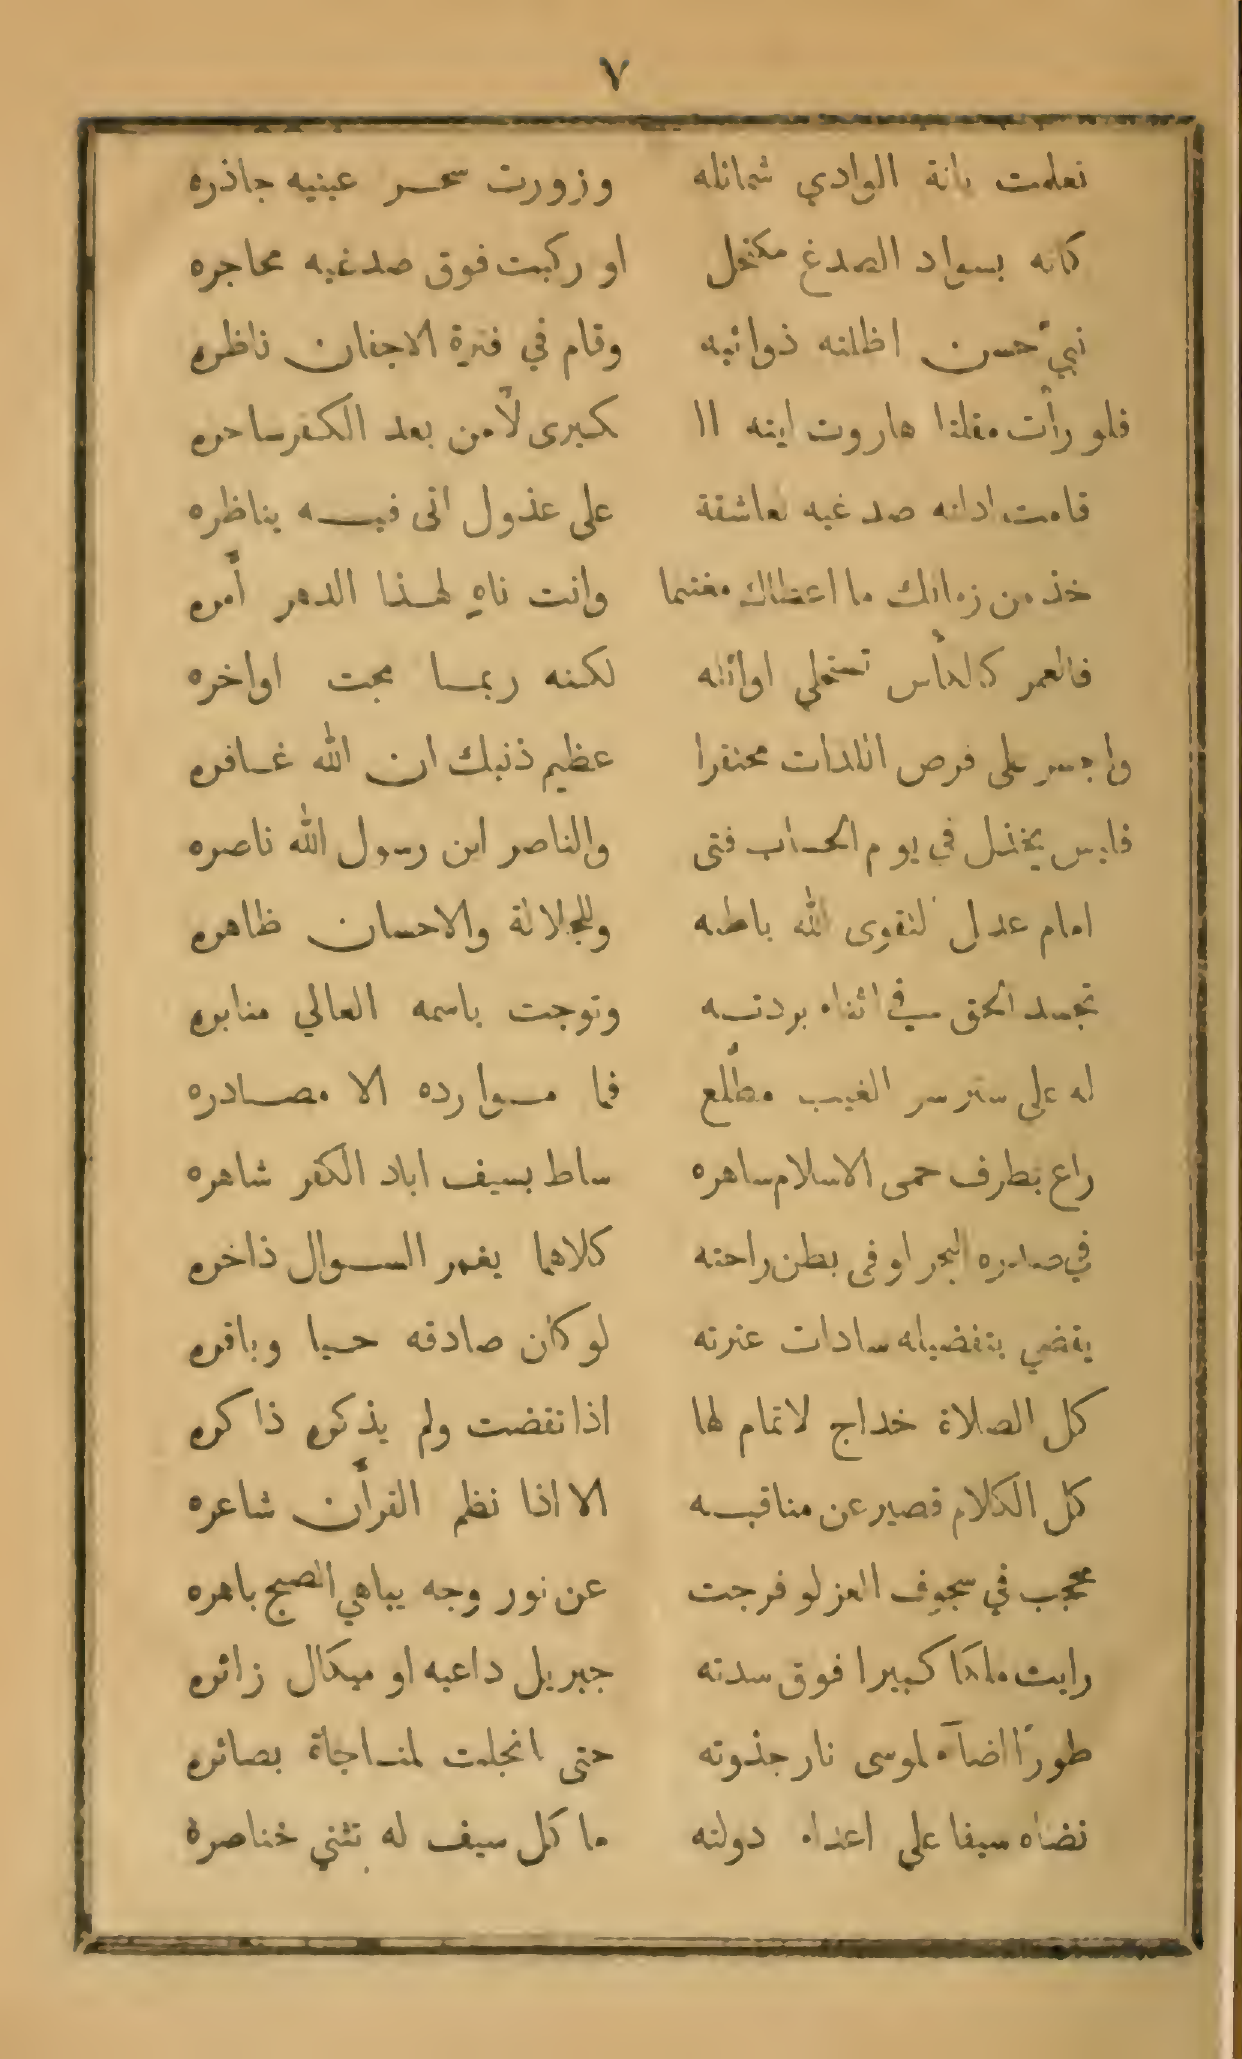 ٧
تعلمت بانة الوادي شمائله وزورت سحر عينيه جاذره
كانه بسواد الصدغ مكتحل او ركبت فوق صدغيه محاجره
نبيّ حسن اظلته ذوائبه وقام في فترة الاجفان ناظره
فلو رأت مقلتا هاروت ايته ال كبرى لأمن بعد الكفر ساحره
قامت ادلة صدغيه لعاشقة على عذول اتى فيه يناظره
خذ من زمانك ما اعطاك مغتنما وانت ناهٍ لهذا الدهر أمره
فالعمر كالكأس تستحلى اوائله لكنه ربما مجت اواخره
واجسر على فرص اللذات محتقرا عظيم ذنبك ان الله غافره
فليس يخذل في يوم الحساب فتى والناصر ابن رسول الله ناصره
امام عدل لتقوى الله باطنه وللجلالة والاحسان ظاهره
تجسد الحق في اثناء بردته وتوجت باسمه العالي منابره
له على ستر سر الغيب مطّلع فما موارده الا مصادره
راع بطرف حمى الاسلام ساهره ساط بسيف اباد الكفر شاهره
في صدره البحر او في بطن راحته كلاهما يغمر السوال ذاخره
يقضي بتفضيله سادات عترته لو كان صادقه حيا وباقره
كل الصلاة خداج لا تمام لها اذا تقضت ولم يذكره ذاكره
كل الكلام قصير عن مناقبه الا اذا نظم القرأن شاعره
محجب في سجوف العز لو فرجت عن نور وجه يباهي الصبح باهره
رايت ملكا كبيرا فوق سدته جبريل داعيه او ميكال زائره
طورًا اضآء لموسى نار جذوته حتى انجلت لمناجاة بصائره
نضاه سيفا على اعداء دولته ما كل سيف له تثني خناصرة